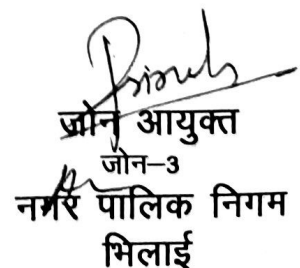 जोन आयुक्त
जोन-3
नगर पालिक निगम
भिलाई